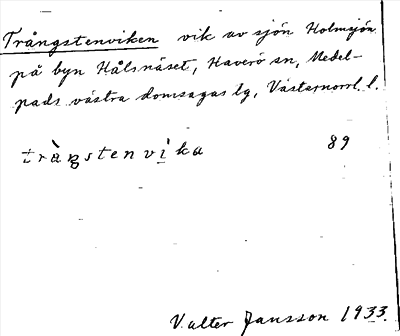 Trångstenviken vik av sjön Holmsjön
på byn Hålsnäset, Haverö sn, Medel-
pads västra domsagas lg, Västernorrl. l.
tràŋstenvìka 89
Valter Jansson 1933.